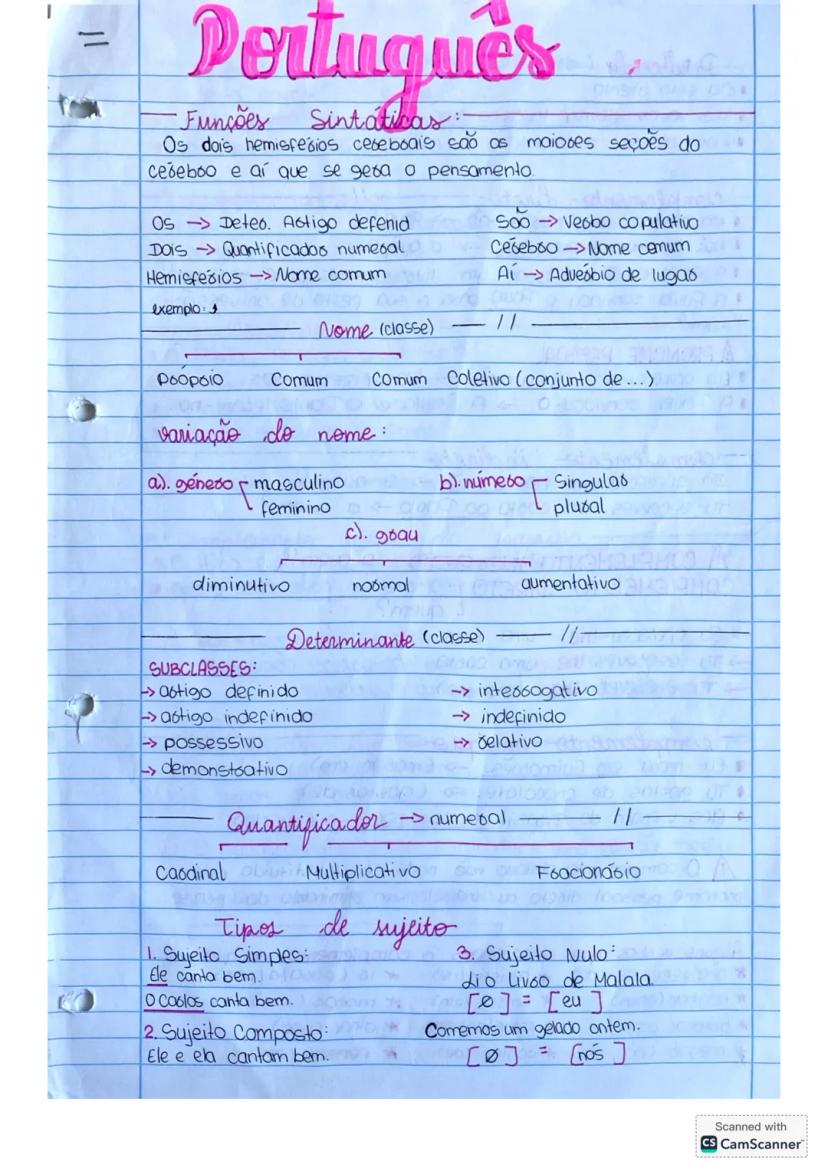 Português
Funções Sintáticas:
Os dois hemisférios cerebrais são as maiores seções do
cérebro e aí que se gera o pensamento.
Os → Deter. Artigo defenid
São → Verbo copulativo
Dois → Quantificador numeral
Cérebro → Nome comum
Hemisférios → Nome comum
Aí → Advérbio de lugar
exemplo:
Nome (classe) //
Próprio Comum Comum Coletivo (conjunto de...)
variação do nome:
a). género masculino
feminino
b). número Singular
plural
c). grau
diminutivo normal aumentativo
Determinante (classe) //
SUBCLASSES:
→ artigo definido
→ interrogativo
→ artigo indefinido
→ indefinido
→ possessivo
→ relativo
→ demonstrativo
Quantificador → numeral //
Cardinal Multiplicativo Fracionário
Tipos de sujeito
1. Sujeito Simples:
Ele canta bem.
O Carlos canta bem.
2. Sujeito Composto:
Ele e ela cantam bem.
3. Sujeito Nulo:
Li o Livro de Malala.
[ø] = [eu]
Comemos um gelado ontem.
[ø] = [nós]
Scanned with
CS CamScanner